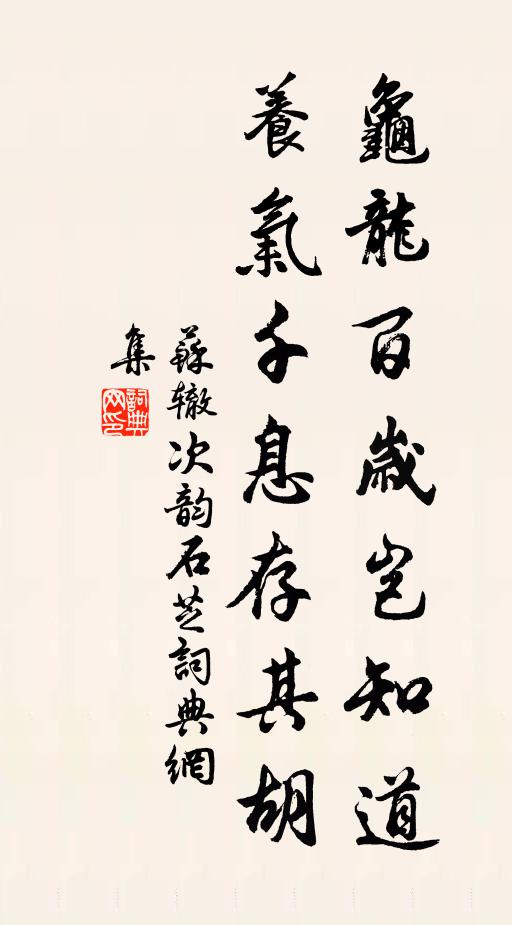 龜龍百歲豈知道
養氣千息存其胡
蘇辙次韵石芝詞典網
集
詞典
网印